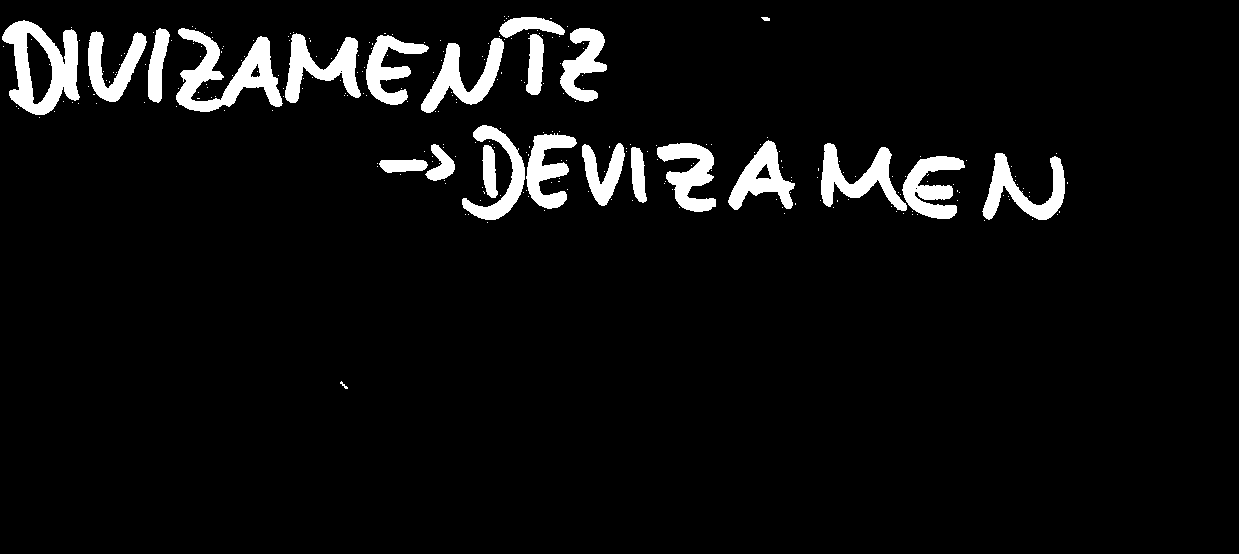 DIVIZAMENTZ
→ DEVIZAMEN